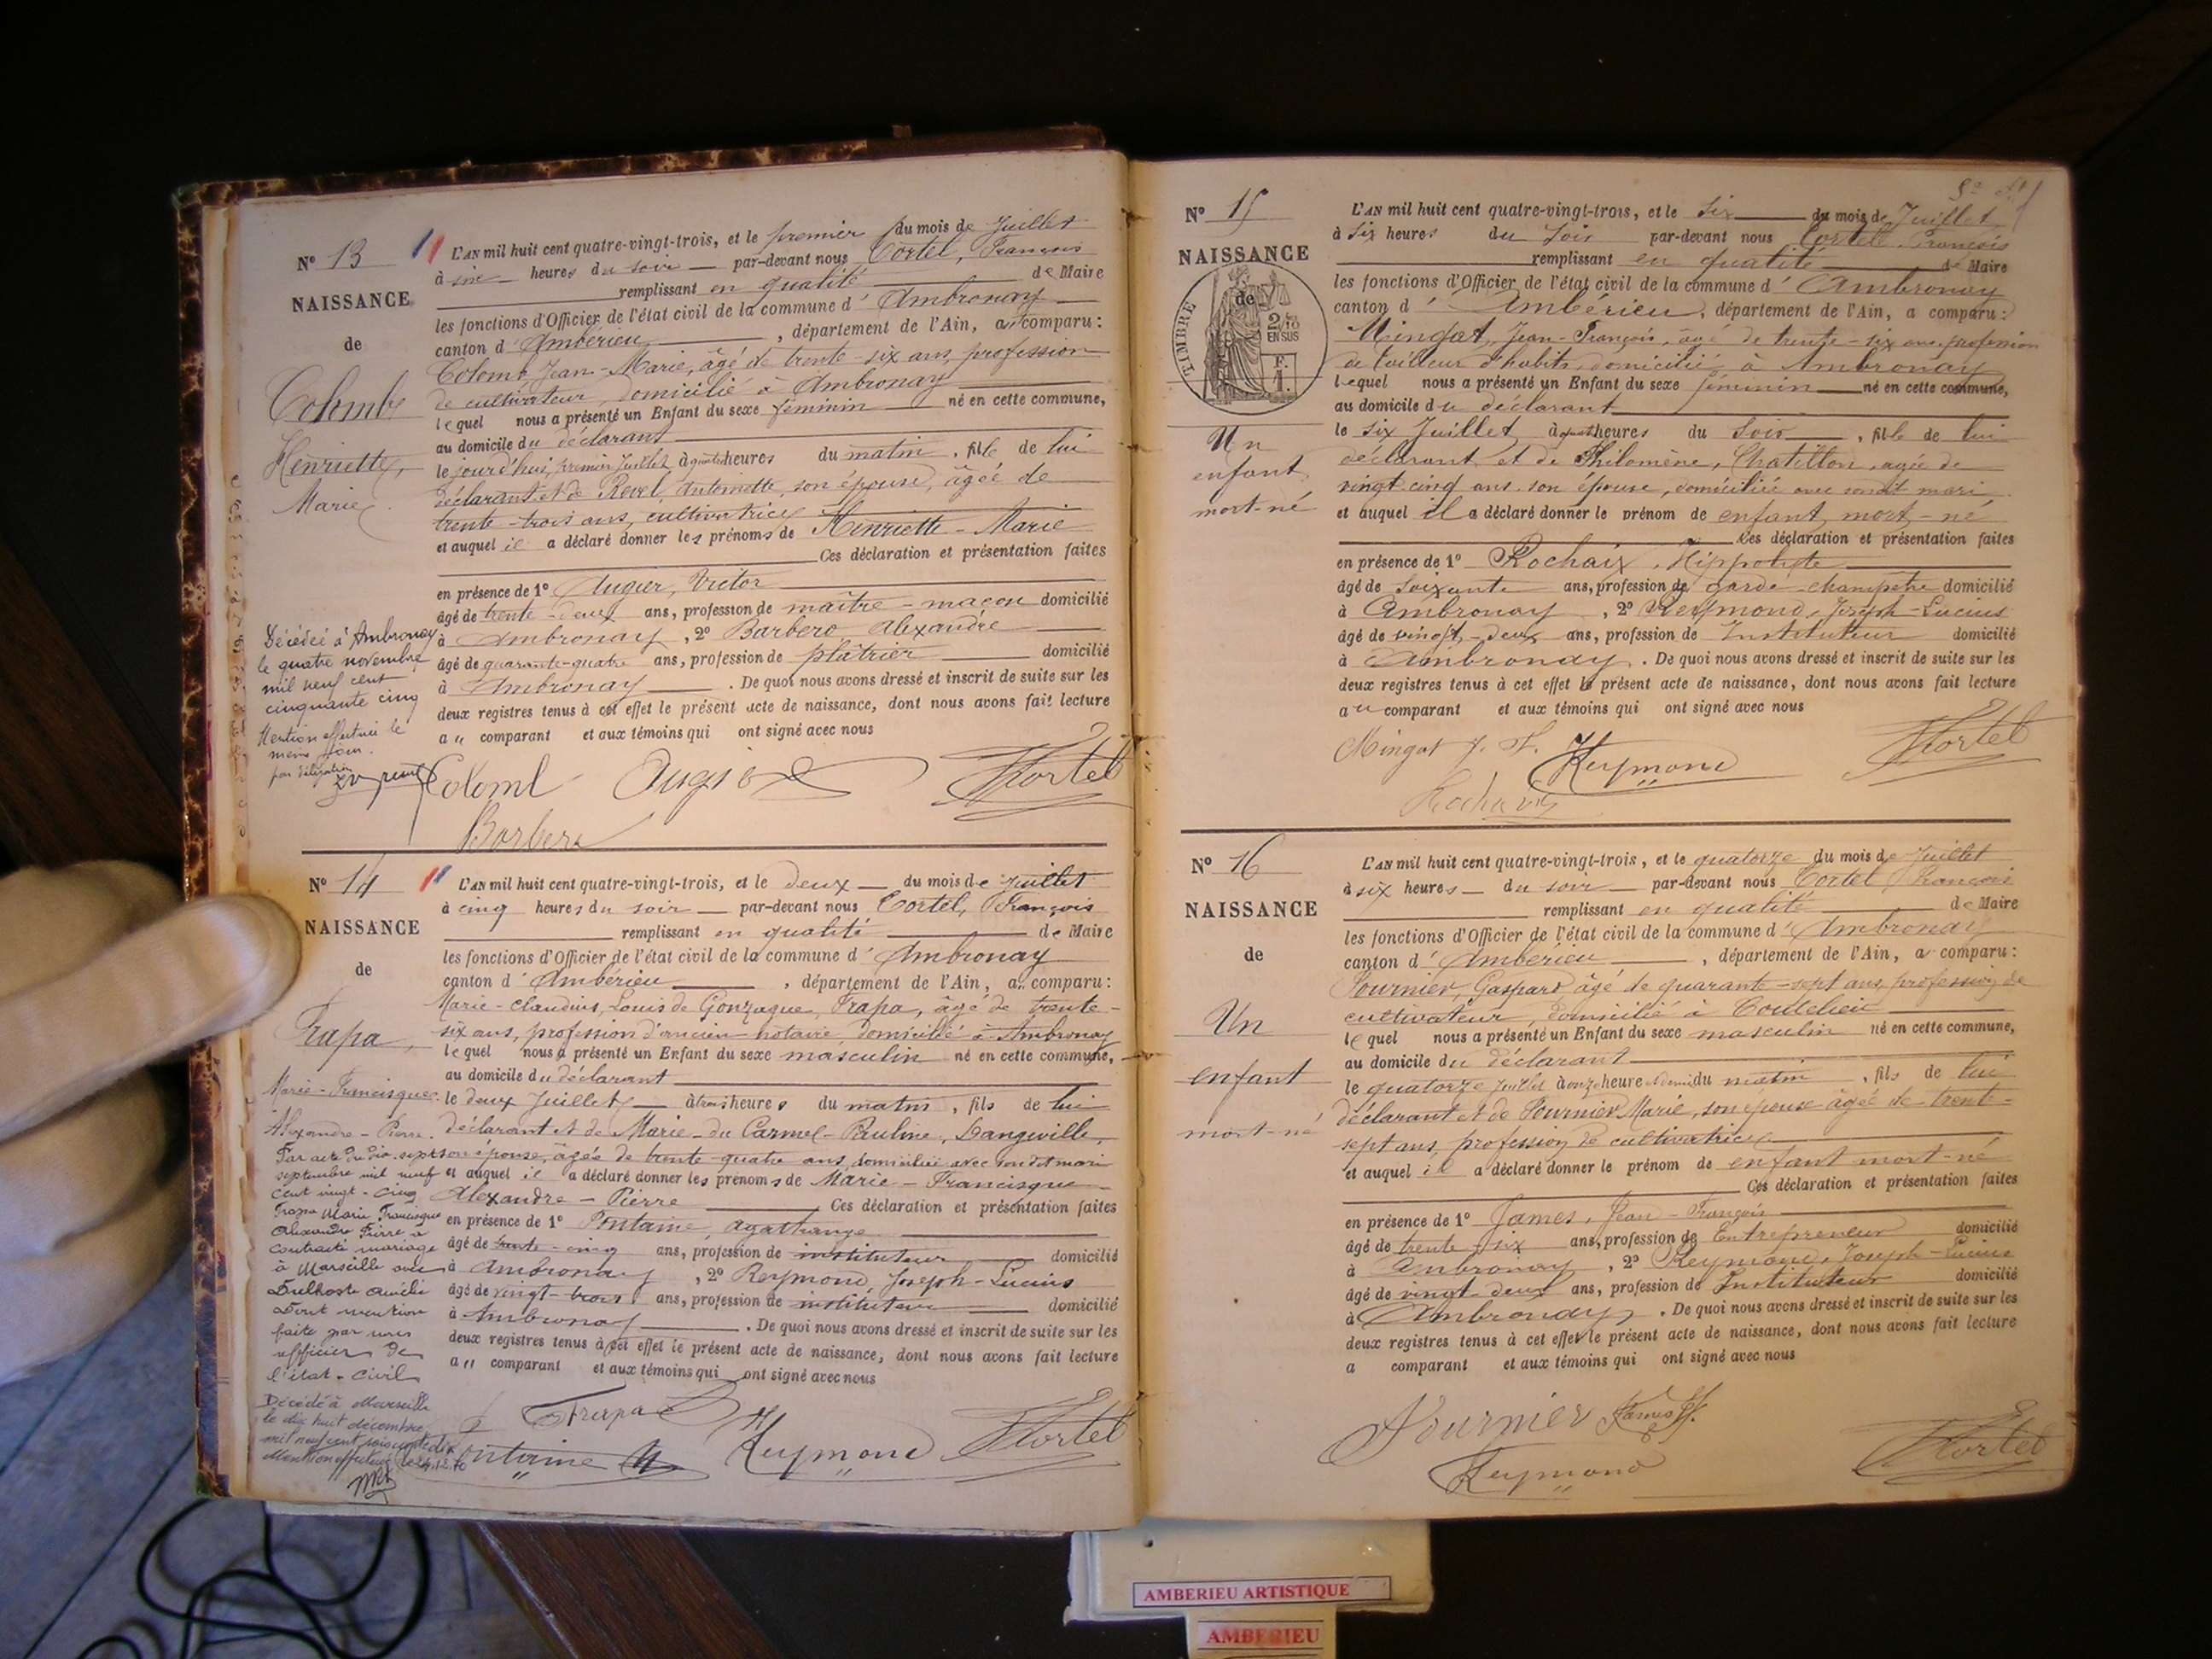 N° 13
NAISSANCE
de
Colomb
Henriette,
Marie
L'AN mil huit cent quatre-vingt-trois, et le premier du mois de Juillet
à six heures du soir par-devant nous Cortel, François
remplissant en qualité de Maire
les fonctions d'Officier de l'état civil de la commune d'Ambronay
canton d'Ambérieu, département de l'Ain, a comparu:
Colomb Jean-Marie, âgé de trente-six ans, profession
de cultivateur, domicilié à Ambronay
lequel nous a présenté un Enfant du sexe féminin né en cette commune,
au domicile du déclarant
le jourd'hui, premier Juillet à quatre heures du matin, fille de lui
déclarant et de Revel, Antoinette, son épouse, âgée de
trente-trois ans, cultivatrice
et auquel il a déclaré donner les prénoms de Henriette-Marie
Ces déclaration et présentation faites
en présence de 1° Augier, Victor
âgé de trente-deux ans, profession de maître-maçon domicilié
à Ambronay, 2° Barbero Alexandre
âgé de quarante-quatre ans, profession de plâtrier domicilié
à Ambronay. De quoi nous avons dressé et inscrit de suite sur les
deux registres tenus à cet effet le présent acte de naissance, dont nous avons fait lecture
au comparant et aux témoins qui ont signé avec nous
Décédée à Ambronay
le quatre novembre
mil neuf cent
cinquante cinq
Mention effectuée le
même jour.
par délégation
Colomb Augier Cortel
Barbero
N° 14
NAISSANCE
de
Trapa,
Marie-Francisque
Alexandre-Pierre.
L'AN mil huit cent quatre-vingt-trois, et le deux du mois de Juillet
à cinq heures du soir par-devant nous Cortel, François
remplissant en qualité de Maire
les fonctions d'Officier de l'état civil de la commune d'Ambronay
canton d'Ambérieu, département de l'Ain, a comparu:
Marie-Claudius, Louis de Gonzague, Trapa, âgé de trente-
six ans, profession d'ancien notaire domicilié à Ambronay
lequel nous a présenté un Enfant du sexe masculin né en cette commune,
au domicile du déclarant
le deux Juillet à trois heures du matin, fils de lui
déclarant et de Marie-du Carmel-Pauline, Dangeville,
son épouse, âgée de trente-quatre ans, domiciliée avec son dit mari
et auquel il a déclaré donner les prénoms de Marie-Francisque
Alexandre-Pierre Ces déclaration et présentation faites
en présence de 1° Fontaine, Agathange
âgé de trente-cinq ans, profession de instituteur domicilié
à Ambronay, 2° Reymond, Joseph-Lucius
âgé de vingt-trois ans, profession de instituteur domicilié
à Ambronay. De quoi nous avons dressé et inscrit de suite sur les
deux registres tenus à cet effet le présent acte de naissance, dont nous avons fait lecture
au comparant et aux témoins qui ont signé avec nous
Par acte du dix-sept
septembre mil neuf
cent vingt-cinq
Trapa Marie Francisque
Alexandre Pierre a
contracté mariage
à Marseille avec
Dulhoste Aurélie
Dont mention
faite par nous
officier de
l'état-civil
Décédé à Marseille
le dix huit décembre
mil neuf cent soixante dix
Mention effectuée le 24.12.70
Trapa
Fontaine Reymond Cortel
N° 15
NAISSANCE
de
TIMBRE
2/10
EN SUS
F.
1.
Un
enfant
mort-né
L'AN mil huit cent quatre-vingt-trois, et le six du mois de Juillet
à six heures du soir par-devant nous Cortel François
remplissant en qualité de Maire
les fonctions d'Officier de l'état civil de la commune d'Ambronay
canton d'Ambérieu, département de l'Ain, a comparu:
Mingat, Jean-François, âgé de trente-six ans, profession
de tailleur d'habits, domicilié à Ambronay
lequel nous a présenté un Enfant du sexe féminin né en cette commune,
au domicile du déclarant
le six Juillet à quatre heures du soir, fille de lui
déclarant et de Philomène, Chatillon, agée de
vingt-cinq ans son épouse, domiciliée avec son dit mari
et auquel il a déclaré donner le prénom de enfant mort-né
Ces déclaration et présentation faites
en présence de 1° Rochaix, Hippolyte
âgé de soixante ans, profession de garde-champêtre domicilié
à Ambronay, 2° Reymond, Joseph-Lucius
âgé de vingt-deux ans, profession de Instituteur domicilié
à Ambronay. De quoi nous avons dressé et inscrit de suite sur les
deux registres tenus à cet effet le présent acte de naissance, dont nous avons fait lecture
au comparant et aux témoins qui ont signé avec nous
Mingat J. F. Reymond Cortel
Rochaix
N° 16
NAISSANCE
de
Un
enfant
mort-né
L'AN mil huit cent quatre-vingt-trois, et le quatorze du mois de Juillet
à six heures du soir par-devant nous Cortel François
remplissant en qualité de Maire
les fonctions d'Officier de l'état civil de la commune d'Ambronay
canton d'Ambérieu, département de l'Ain, a comparu:
Fournier, Gaspard âgé de quarante-sept ans, profession de
cultivateur, domicilié à Coutelieu
lequel nous a présenté un Enfant du sexe masculin né en cette commune,
au domicile du déclarant
le quatorze Juillet à onze heure et demi du matin, fils de lui
déclarant et de Fournier Marie, son épouse âgée de trente-
sept ans, profession de cultivatrice
et auquel il a déclaré donner le prénom de enfant mort-né
Ces déclaration et présentation faites
en présence de 1° James, Jean-François
âgé de trente-six ans, profession de Entrepreneur domicilié
à Ambronay, 2° Reymond, Joseph-Lucius
âgé de vingt deux ans, profession de Instituteur domicilié
à Ambronay. De quoi nous avons dressé et inscrit de suite sur les
deux registres tenus à cet effet le présent acte de naissance, dont nous avons fait lecture
a comparant et aux témoins qui ont signé avec nous
Fournier James
Reymond Cortel
AMBERIEU ARTISTIQUE
AMBERIEU